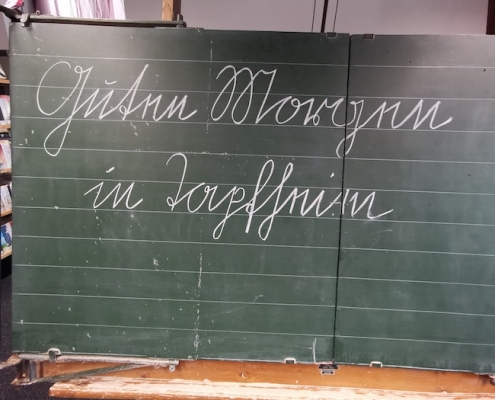 Guten Morgen
in Tapfheim